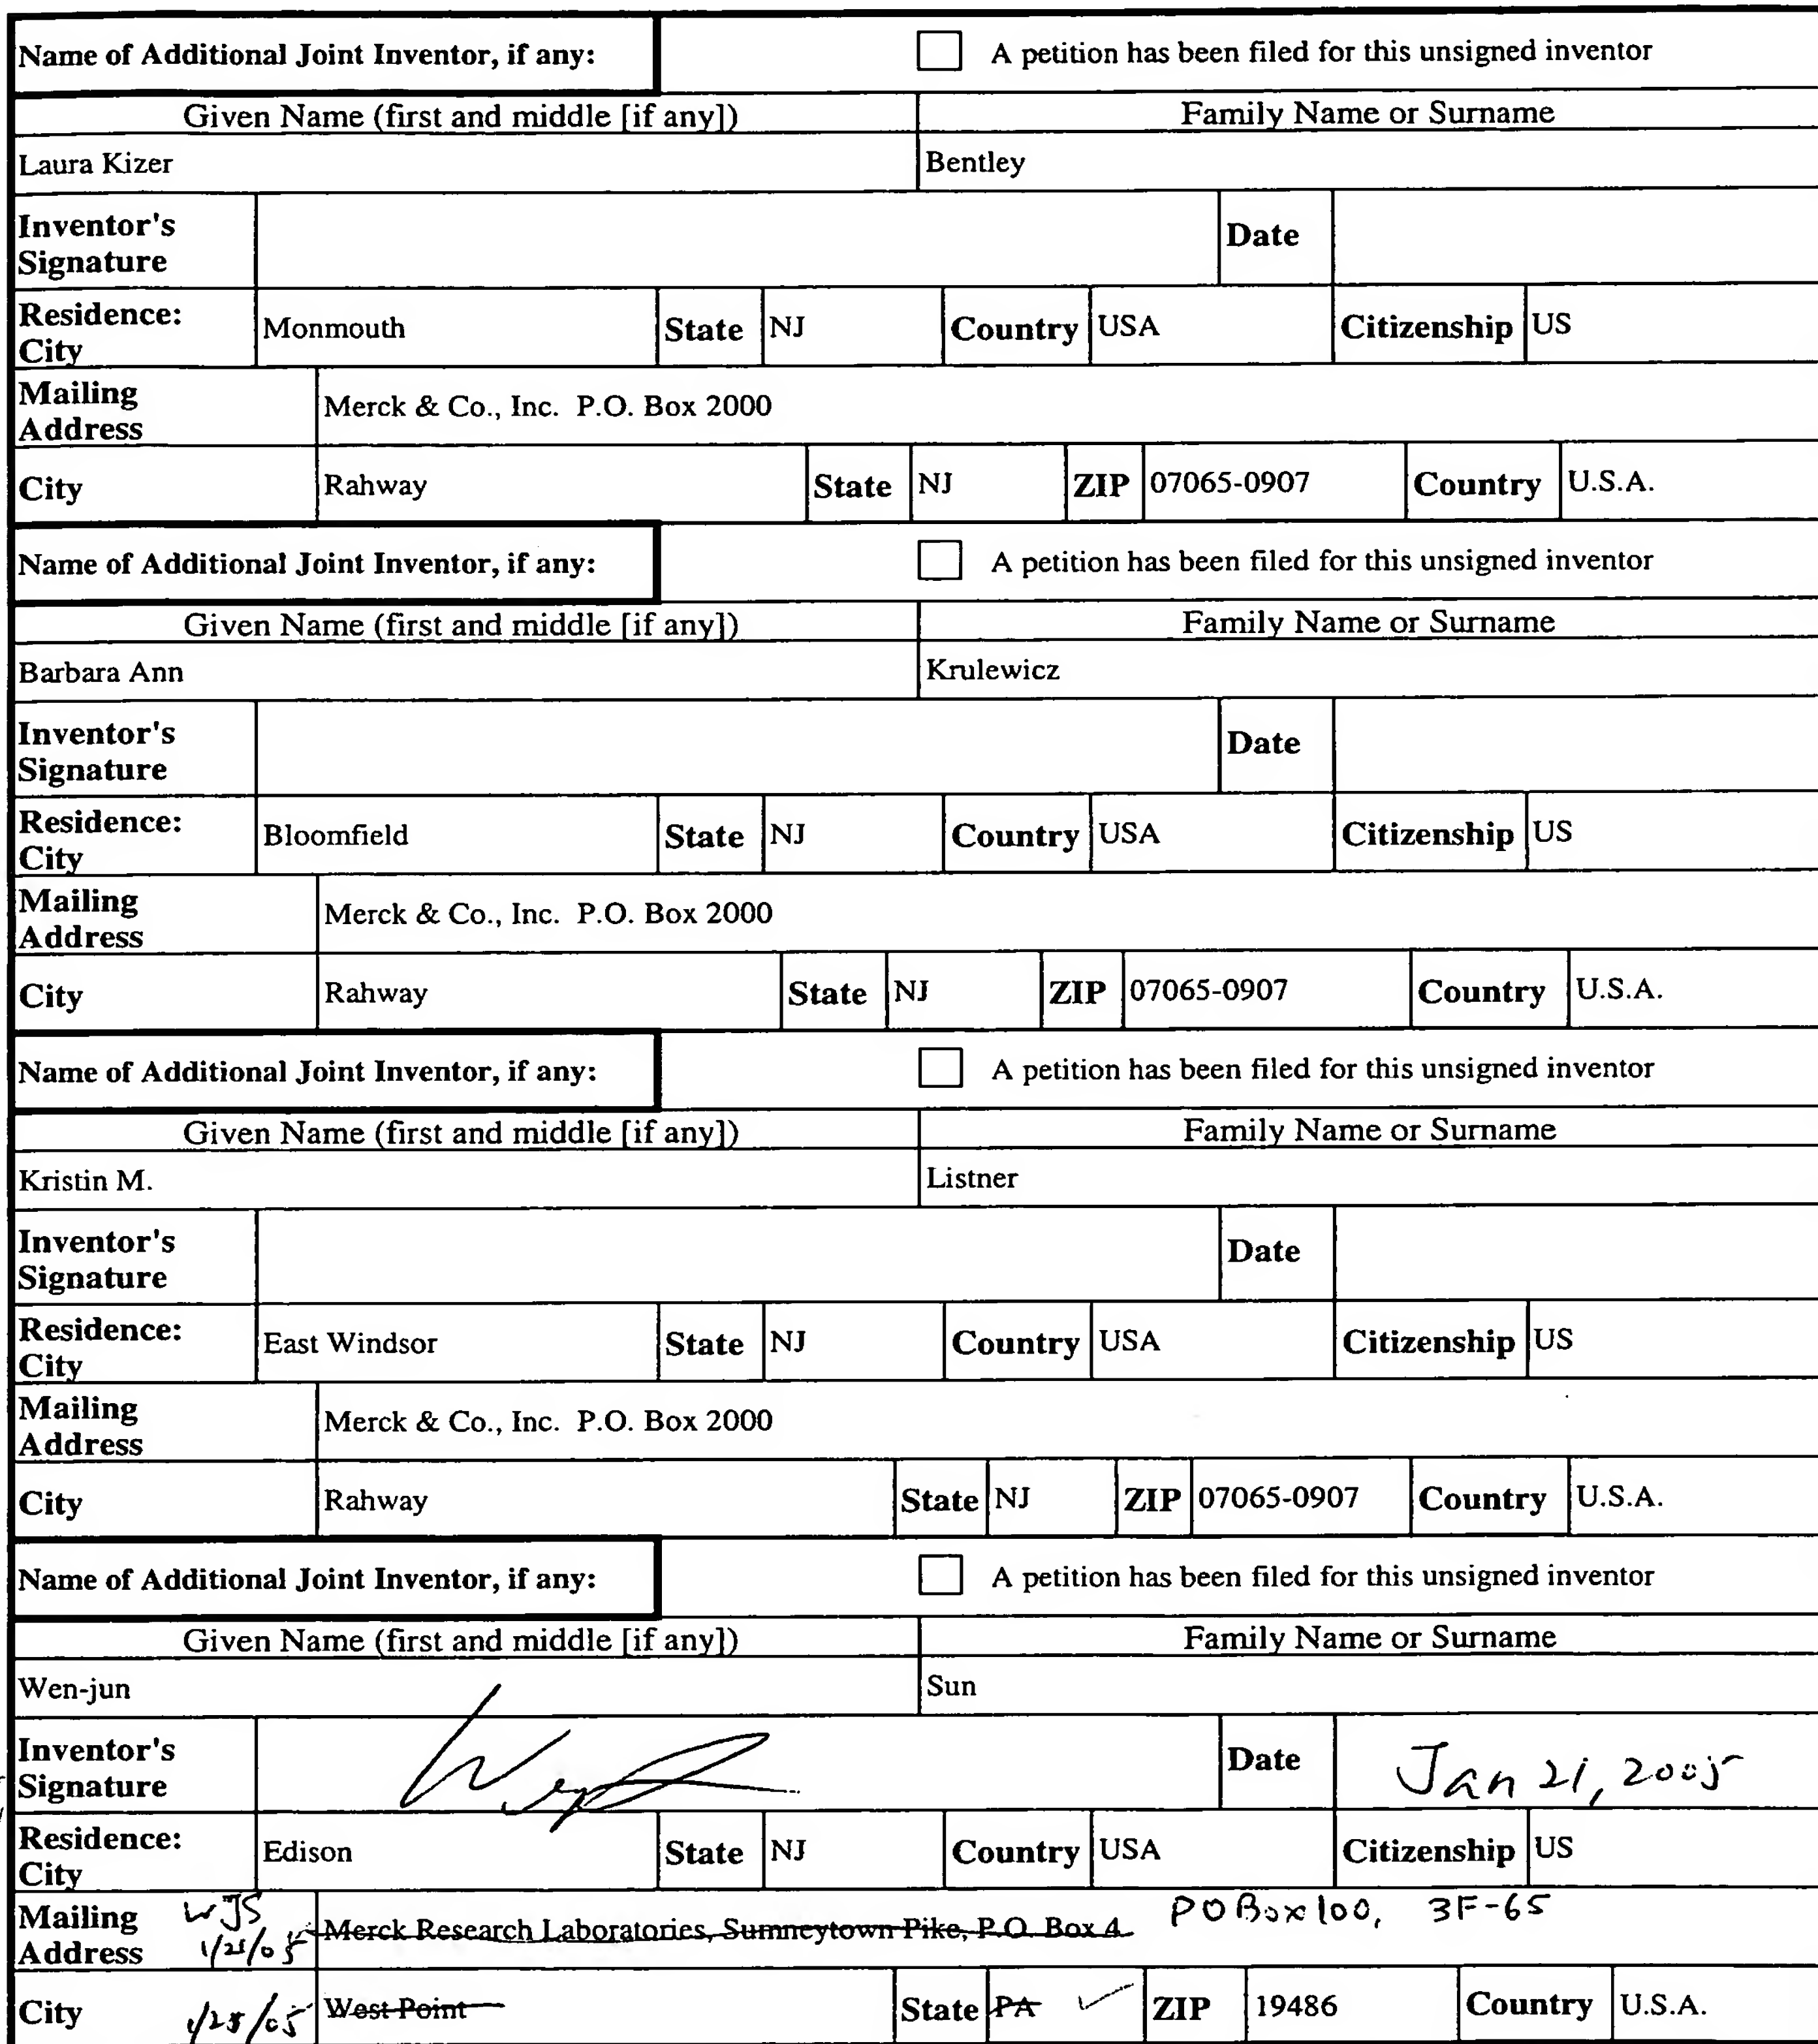 Name of Additional Joint Inventor, if any: A petition has been filed for this unsigned inventor
Given Name (first and middle [if any]) Family Name or Surname
Laura Kizer Bentley
Inventor's Signature Date
Residence: City Monmouth State NJ Country USA Citizenship US
Mailing Address Merck & Co., Inc. P.O. Box 2000
City Rahway State NJ ZIP 07065-0907 Country U.S.A.
Name of Additional Joint Inventor, if any: A petition has been filed for this unsigned inventor
Given Name (first and middle [if any]) Family Name or Surname
Barbara Ann Krulewicz
Inventor's Signature Date
Residence: City Bloomfield State NJ Country USA Citizenship US
Mailing Address Merck & Co., Inc. P.O. Box 2000
City Rahway State NJ ZIP 07065-0907 Country U.S.A.
Name of Additional Joint Inventor, if any: A petition has been filed for this unsigned inventor
Given Name (first and middle [if any]) Family Name or Surname
Kristin M. Listner
Inventor's Signature Date
Residence: City East Windsor State NJ Country USA Citizenship US
Mailing Address Merck & Co., Inc. P.O. Box 2000
City Rahway State NJ ZIP 07065-0907 Country U.S.A.
Name of Additional Joint Inventor, if any: A petition has been filed for this unsigned inventor
Given Name (first and middle [if any]) Family Name or Surname
Wen-jun Sun
Inventor's Signature Date Jan 21, 2005
Residence: City Edison State NJ Country USA Citizenship US
Mailing Address WJS Merck Research Laboratories, Sumneytown Pike, P.O. Box 4 PO Box 100, 3F-65
City West Point State PA ZIP 19486 Country U.S.A.